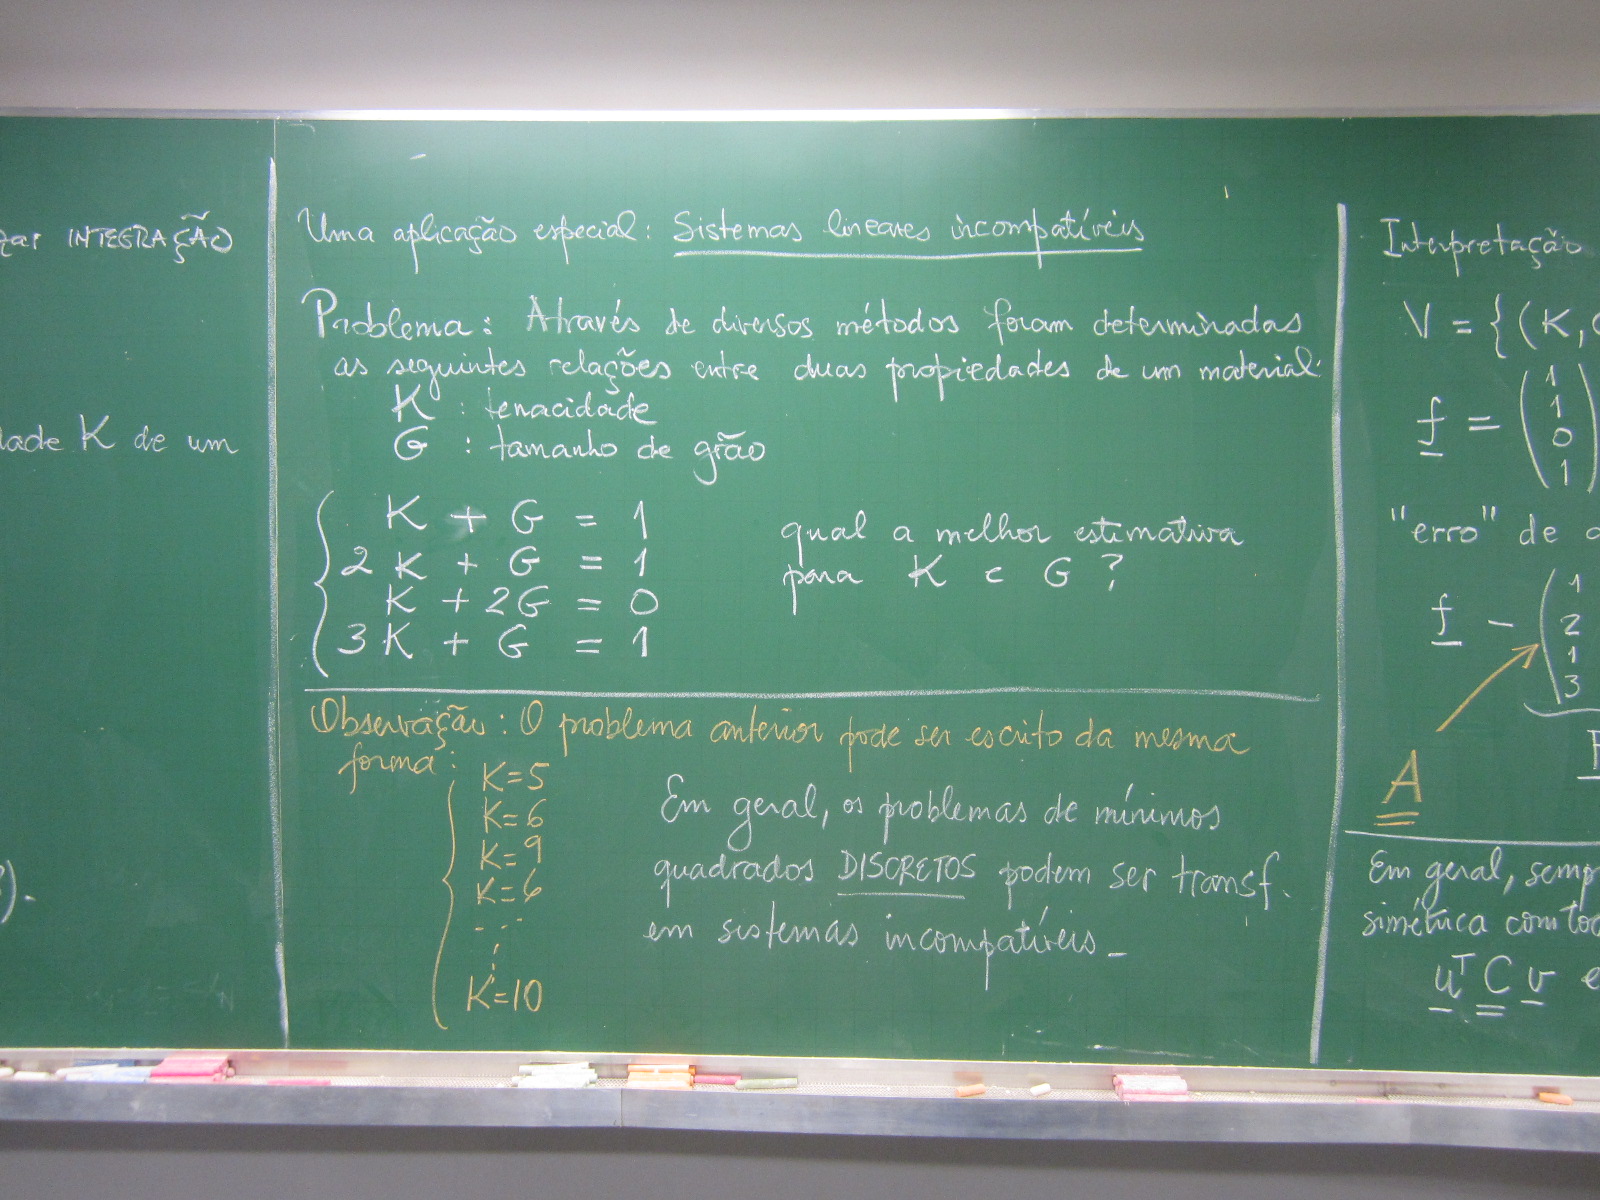 INTEGRAÇÃO
K de um
).
Uma aplicação especial: Sistemas lineares incompatíveis
Problema: Através de diversos métodos foram determinadas
as seguintes relações entre duas propiedades de um material:
K : tenacidade
G : tamanho de grão
K + G = 1
2K + G = 1
K + 2G = 0
3K + G = 1
qual a melhor estimativa
para K e G ?
Observação: O problema anterior pode ser escrito da mesma
forma:
K=5
K=6
K=9
K=6
K=10
Em geral, os problemas de mínimos
quadrados DISCRETOS podem ser transf.
em sistemas incompatíveis_
Interpretação
V = {(K,
f = (1
1
0
1)
"erro" de
f - (1
2
1
3
A
Em geral,
simétrica
uᵀ C v e